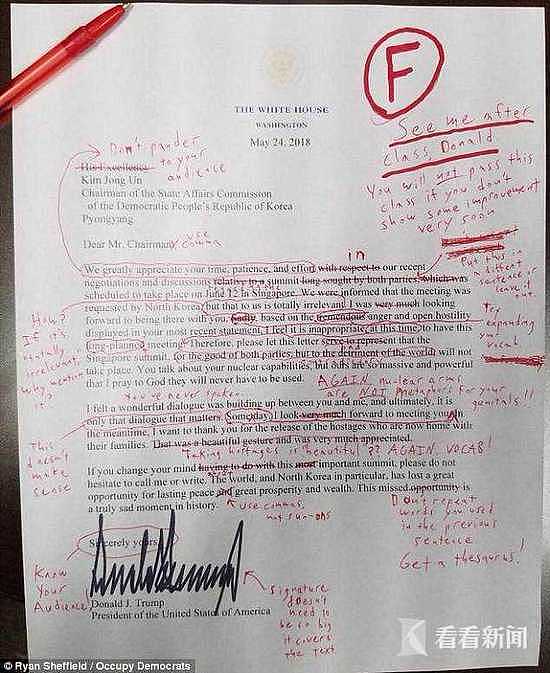 F
See me after
class, Donald.
You will not pass this
class if you don't
show some improvement
very soon
THE WHITE HOUSE
WASHINGTON
May 24, 2018
Don't pander
to your
audience
His Excellency
Kim Jong Un
Chairman of the State Affairs Commission
of the Democratic People's Republic of Korea
Pyongyang
use
comma
Dear Mr. Chairman:
in
We greatly appreciate your time, patience, and effort with respect to our recent
negotiations and discussions relative to a summit long sought by both parties, which was
scheduled to take place on June 12 in Singapore. We were informed that the meeting was
requested by North Korea, but that to us is totally irrelevant. I was very much looking
forward to being there with you. Sadly, based on the tremendous anger and open hostility
displayed in your most recent statement, I feel it is inappropriate, at this time, to have this
long-planned meeting. Therefore, please let this letter serve to represent that the
Singapore summit, for the good of both parties, but to the detriment of the world, will not
take place. You talk about your nuclear capabilities, but ours are so massive and powerful
that I pray to God they will never have to be used.
Put this
in a
different
sentence or
leave it
out
Try
expanding
your
vocab
How?
If it's
totally
irrelevant
why mention
it
AGAIN, nuclear arms
are NOT metaphors for your
genitals!!
You've never spoken
I felt a wonderful dialogue was building up between you and me, and ultimately, it is
only that dialogue that matters. Someday, I look very much forward to meeting you. In
the meantime, I want to thank you for the release of the hostages who are now home with
their families. That was a beautiful gesture and was very much appreciated.
This
doesn't
make
sense
Taking hostages is beautiful?? AGAIN, VOCAB!
If you change your mind having to do with this most important summit, please do not
hesitate to call me or write. The world, and North Korea in particular, has lost a great
opportunity for lasting peace and great prosperity and wealth. This missed opportunity is
a truly sad moment in history.
use commas,
not run-ons
Don't repeat
words you used
in the previous
sentence
Get a thesaurus!
Sincerely yours,
Know
Your
Audience!
Donald J. Trump
President of the United States of America
signature
doesn't
need to
be so big
it covers
the text
看看新闻
© Ryan Sheffield / Occupy Democrats